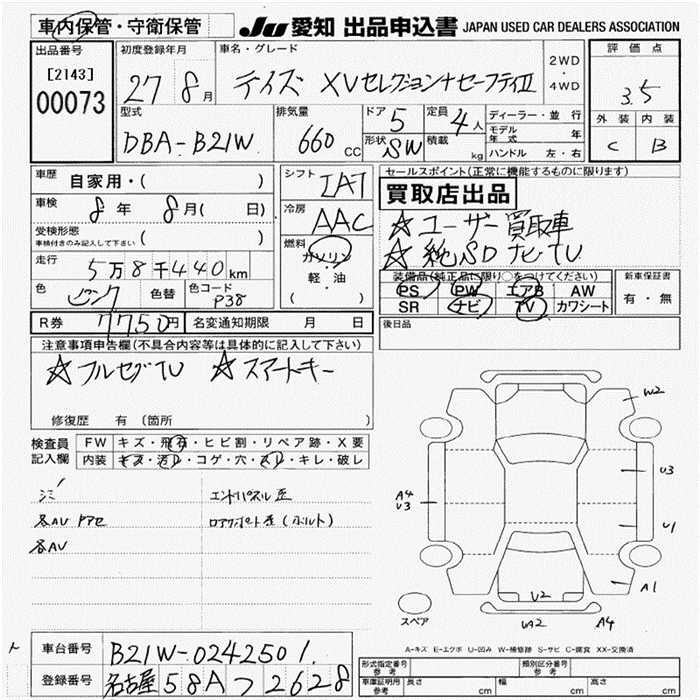 車内保管・守衛保管
JU 愛知 出品申込書 JAPAN USED CAR DEALERS ASSOCIATION
出品番号
[2143]
00073
初度登録年月
27 8月
車名・グレード
デイズ XVセレクション+セーフティII
2WD
・
4WD
評価点
3.5
外装 内装
C B
型式
DBA-B21W
排気量
660 CC
ドア 5
形状 SW
定員 4人
積載 kg
ディーラー・並行
モデル年式 年
ハンドル 左・右
車歴 自家用・( )
車検 8年 8月( 日)
受検形態
車検付きのみ記入して下さい ( )
走行 5万8千440km
色 ピンク 色替 色コード P38
シフト IAT
冷房 AAC
燃料 ガソリン・
軽・油
( )
セールスポイント(正常に機能するものに限ります)
買取店出品
☆ユーザー買取車
☆純SDナビ・TV
装備品(純正品に限り○をつけてください)
PS PW エアB AW
SR ナビ TV カワシート
新車保証書
有・無
後日品
R券 7750円 名変通知期限 月 日
注意事項申告欄(不具合内容等は具体的に記入して下さい)
☆フルセグTV ☆スマートキー
修復歴 有(箇所 )
検査員
記入欄
FW キズ・飛石・ヒビ割・リペア跡・X要
内装 キズ・汚レ・コゲ・穴・スレ・キレ・破レ
シミ エンドパネル歪
各AU ドアセ ロアサポート歪(ボルト)
各AU
W2
U3
A4
U3
U1
A1
U2
UA2
A4
スペア
A-キズ E-エクボ U-凹み W-補修跡 S-サビ C-腐食 XX-交換済
車台番号 B21W-0242501
登録番号 名古屋58Aつ2628
形式指定番号
参考
類別区分番号
参考
車庫証明用
参考
長さ cm 幅 cm 高さ cm